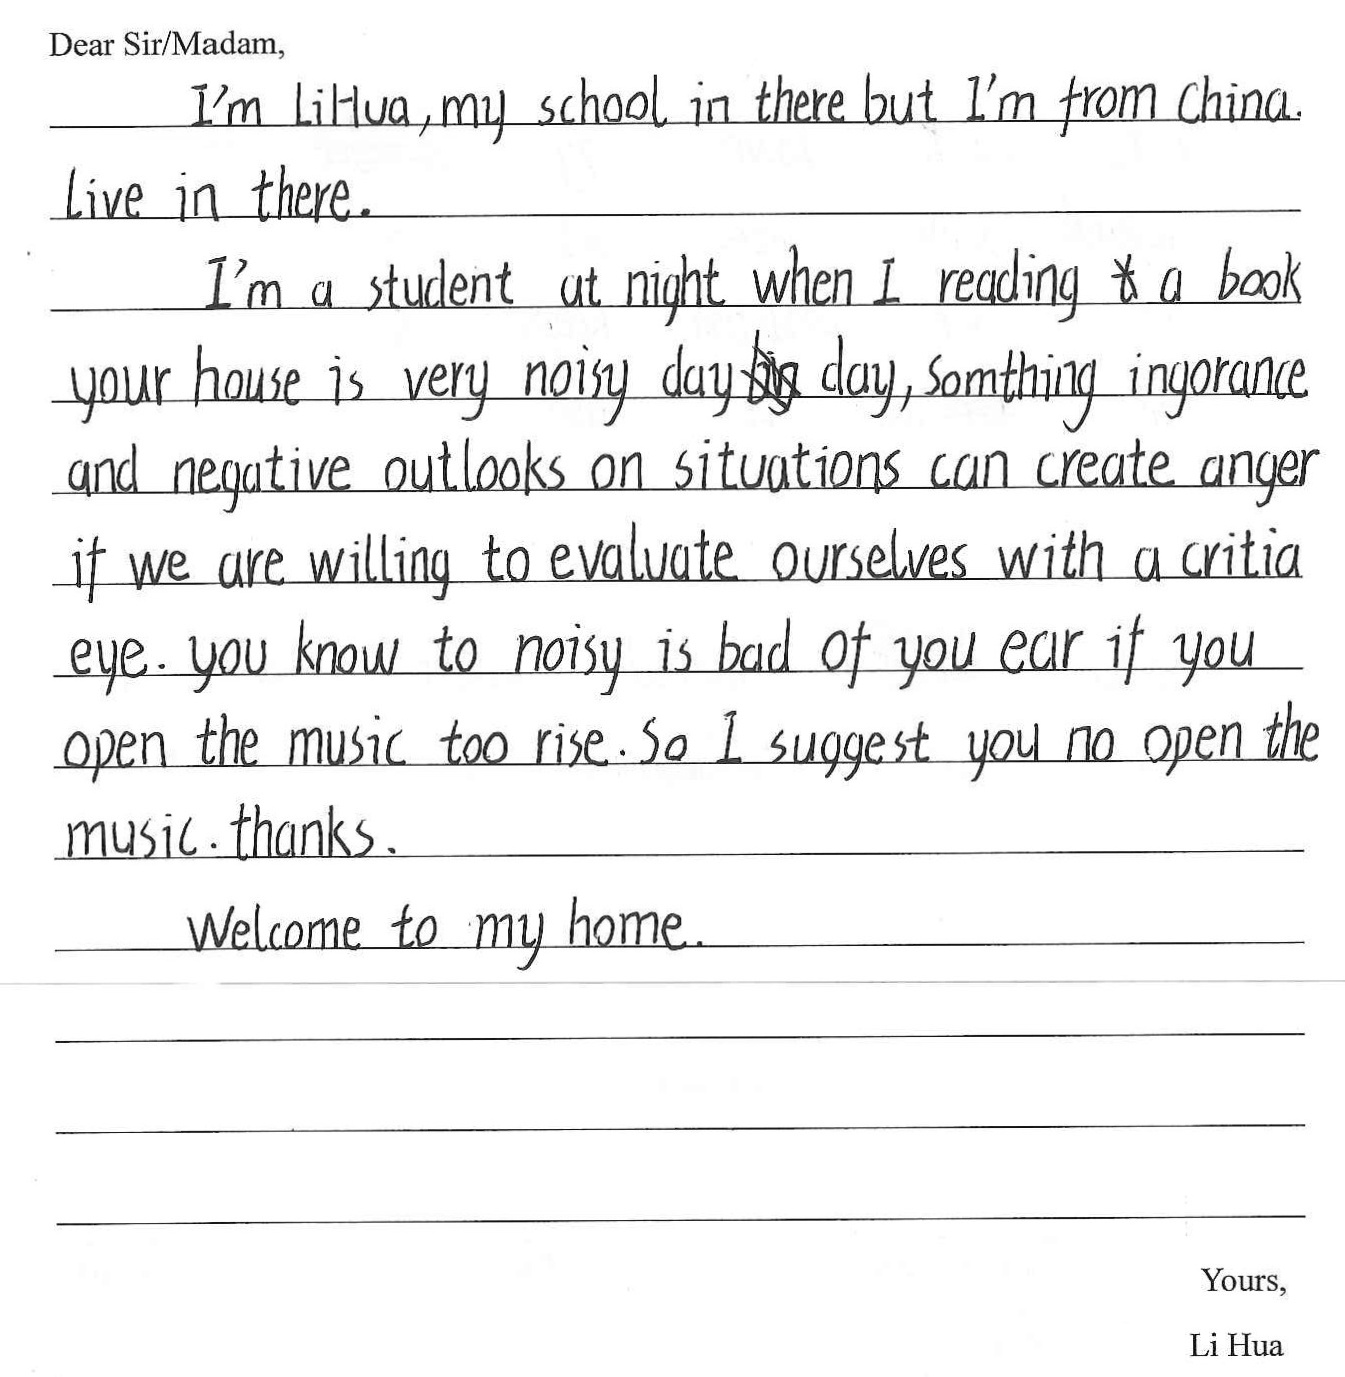 Dear Sir/Madam,
I'm LiHua, my school in there but I'm from China.
Live in there.
I'm a student at night when I reading a book
your house is very noisy day day, Somthing ingorance
and negative outlooks on situations can create anger
if we are willing to evaluate ourselves with a critia
eye. you know to noisy is bad of you ear if you
open the music too rise. So I suggest you no open the
music. thanks.
Welcome to my home.
Yours,
Li Hua